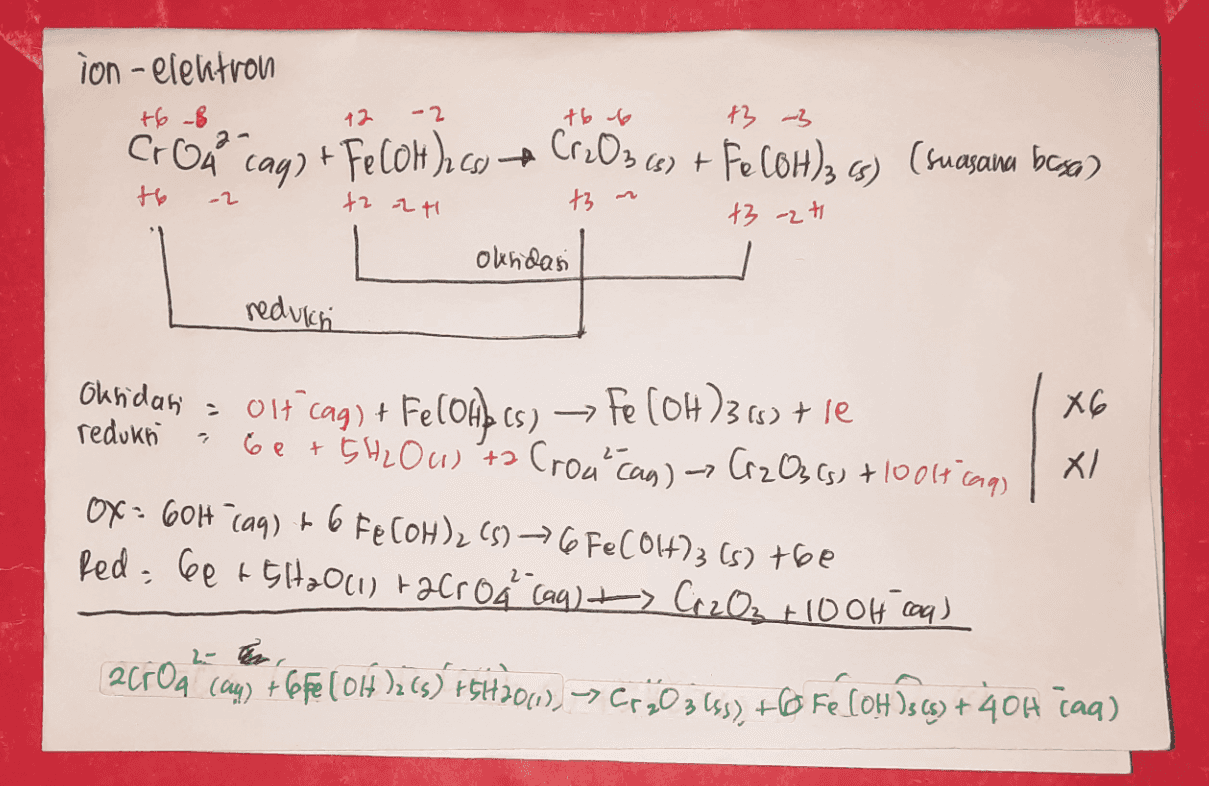 ion - elektron
+6 -8 +2 -2 +6 -6 +3 -3
CrO₄²⁻ (aq) + Fe(OH)₂ (s) → Cr₂O₃ (s) + Fe(OH)₃ (s) (suasana basa)
+6 -2 +2 -2 +1 +3 -2 +3 -2 +1
oksidasi
reduksi
Oksidasi = OH⁻ (aq) + Fe(OH)₂ (s) → Fe(OH)₃ (s) + 1e | x6
reduksi = 6e + 5H₂O(l) + 2 CrO₄²⁻ (aq) → Cr₂O₃ (s) + 10OH⁻ (aq) | x1
OX = 6OH⁻ (aq) + 6 Fe(OH)₂ (s) → 6 Fe(OH)₃ (s) + 6e
Red = 6e + 5H₂O(l) + 2CrO₄²⁻ (aq) → Cr₂O₃ + 10OH⁻ (aq)
2CrO₄²⁻ (aq) + 6Fe(OH)₂ (s) + 5H₂O(l) → Cr₂O₃ (s) + 6 Fe(OH)₃ (s) + 4OH⁻ (aq)